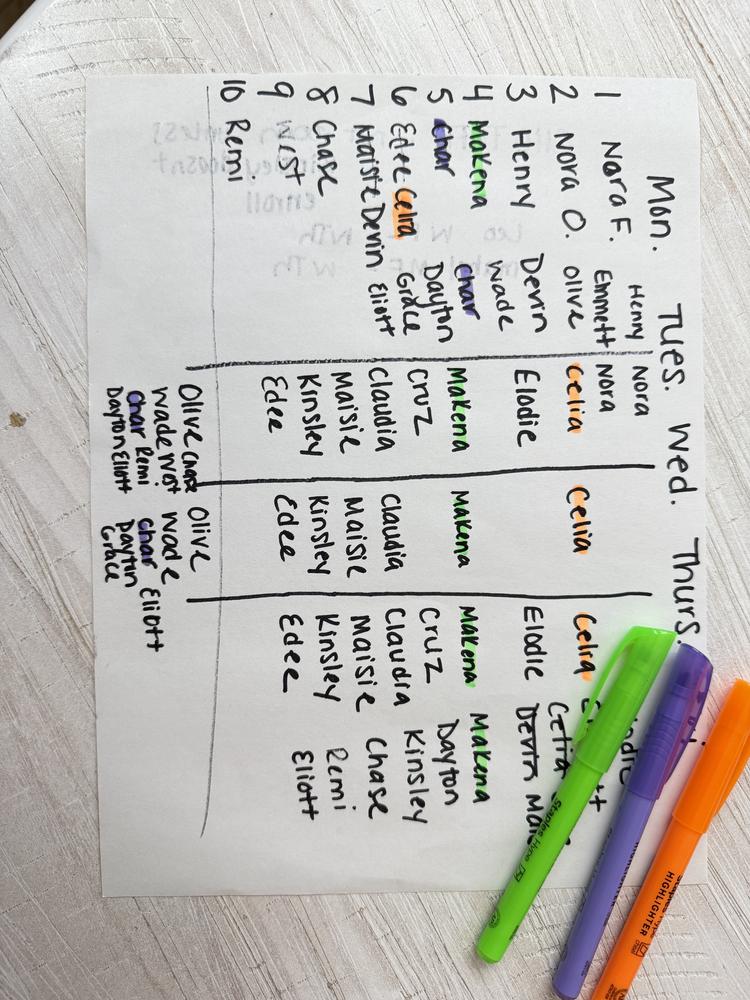 Mon. Tues. Wed. Thurs.
Henry Nora
1 Nora F. Emmett Nora
2 Nora O. Olive Celia Celia Celia
3 Henry Devin Elodie Elodie Devin
Wade
4 Makena Char Makena Makena Makena Makena
5 Char Dayton Cruz Cruz Dayton
6 Edee Celia Grace Claudia Claudia Claudia Kinsley
7 Maisie Devin Eliott Maisie Maisie Maisie Chase
8 Chase Kinsley Kinsley Kinsley Remi
9 West Edee Edee Edee Eliott
10 Remi
Olive Chase Olive
Wade West Wade
Char Remi Char Eliott
Dayton Eliott Dayton
Grace
Staples Hype
HIGHLIGHTER